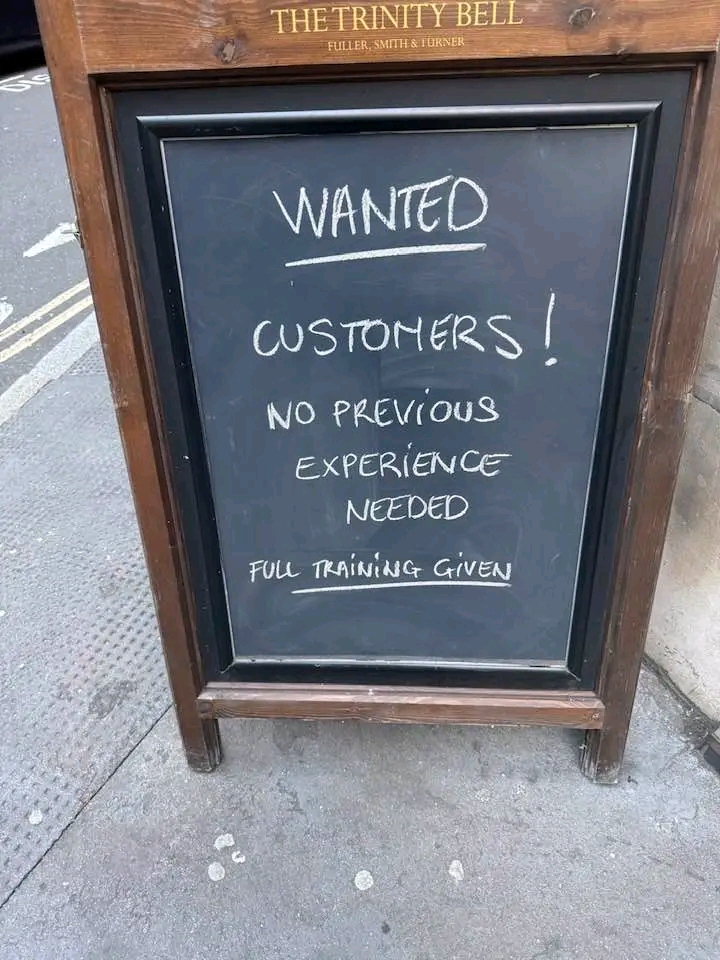 THE TRINITY BELL
FULLER, SMITH & TURNER
WANTED
CUSTOMERS!
NO PREVIOUS
EXPERIENCE
NEEDED
FULL TRAINING GIVEN